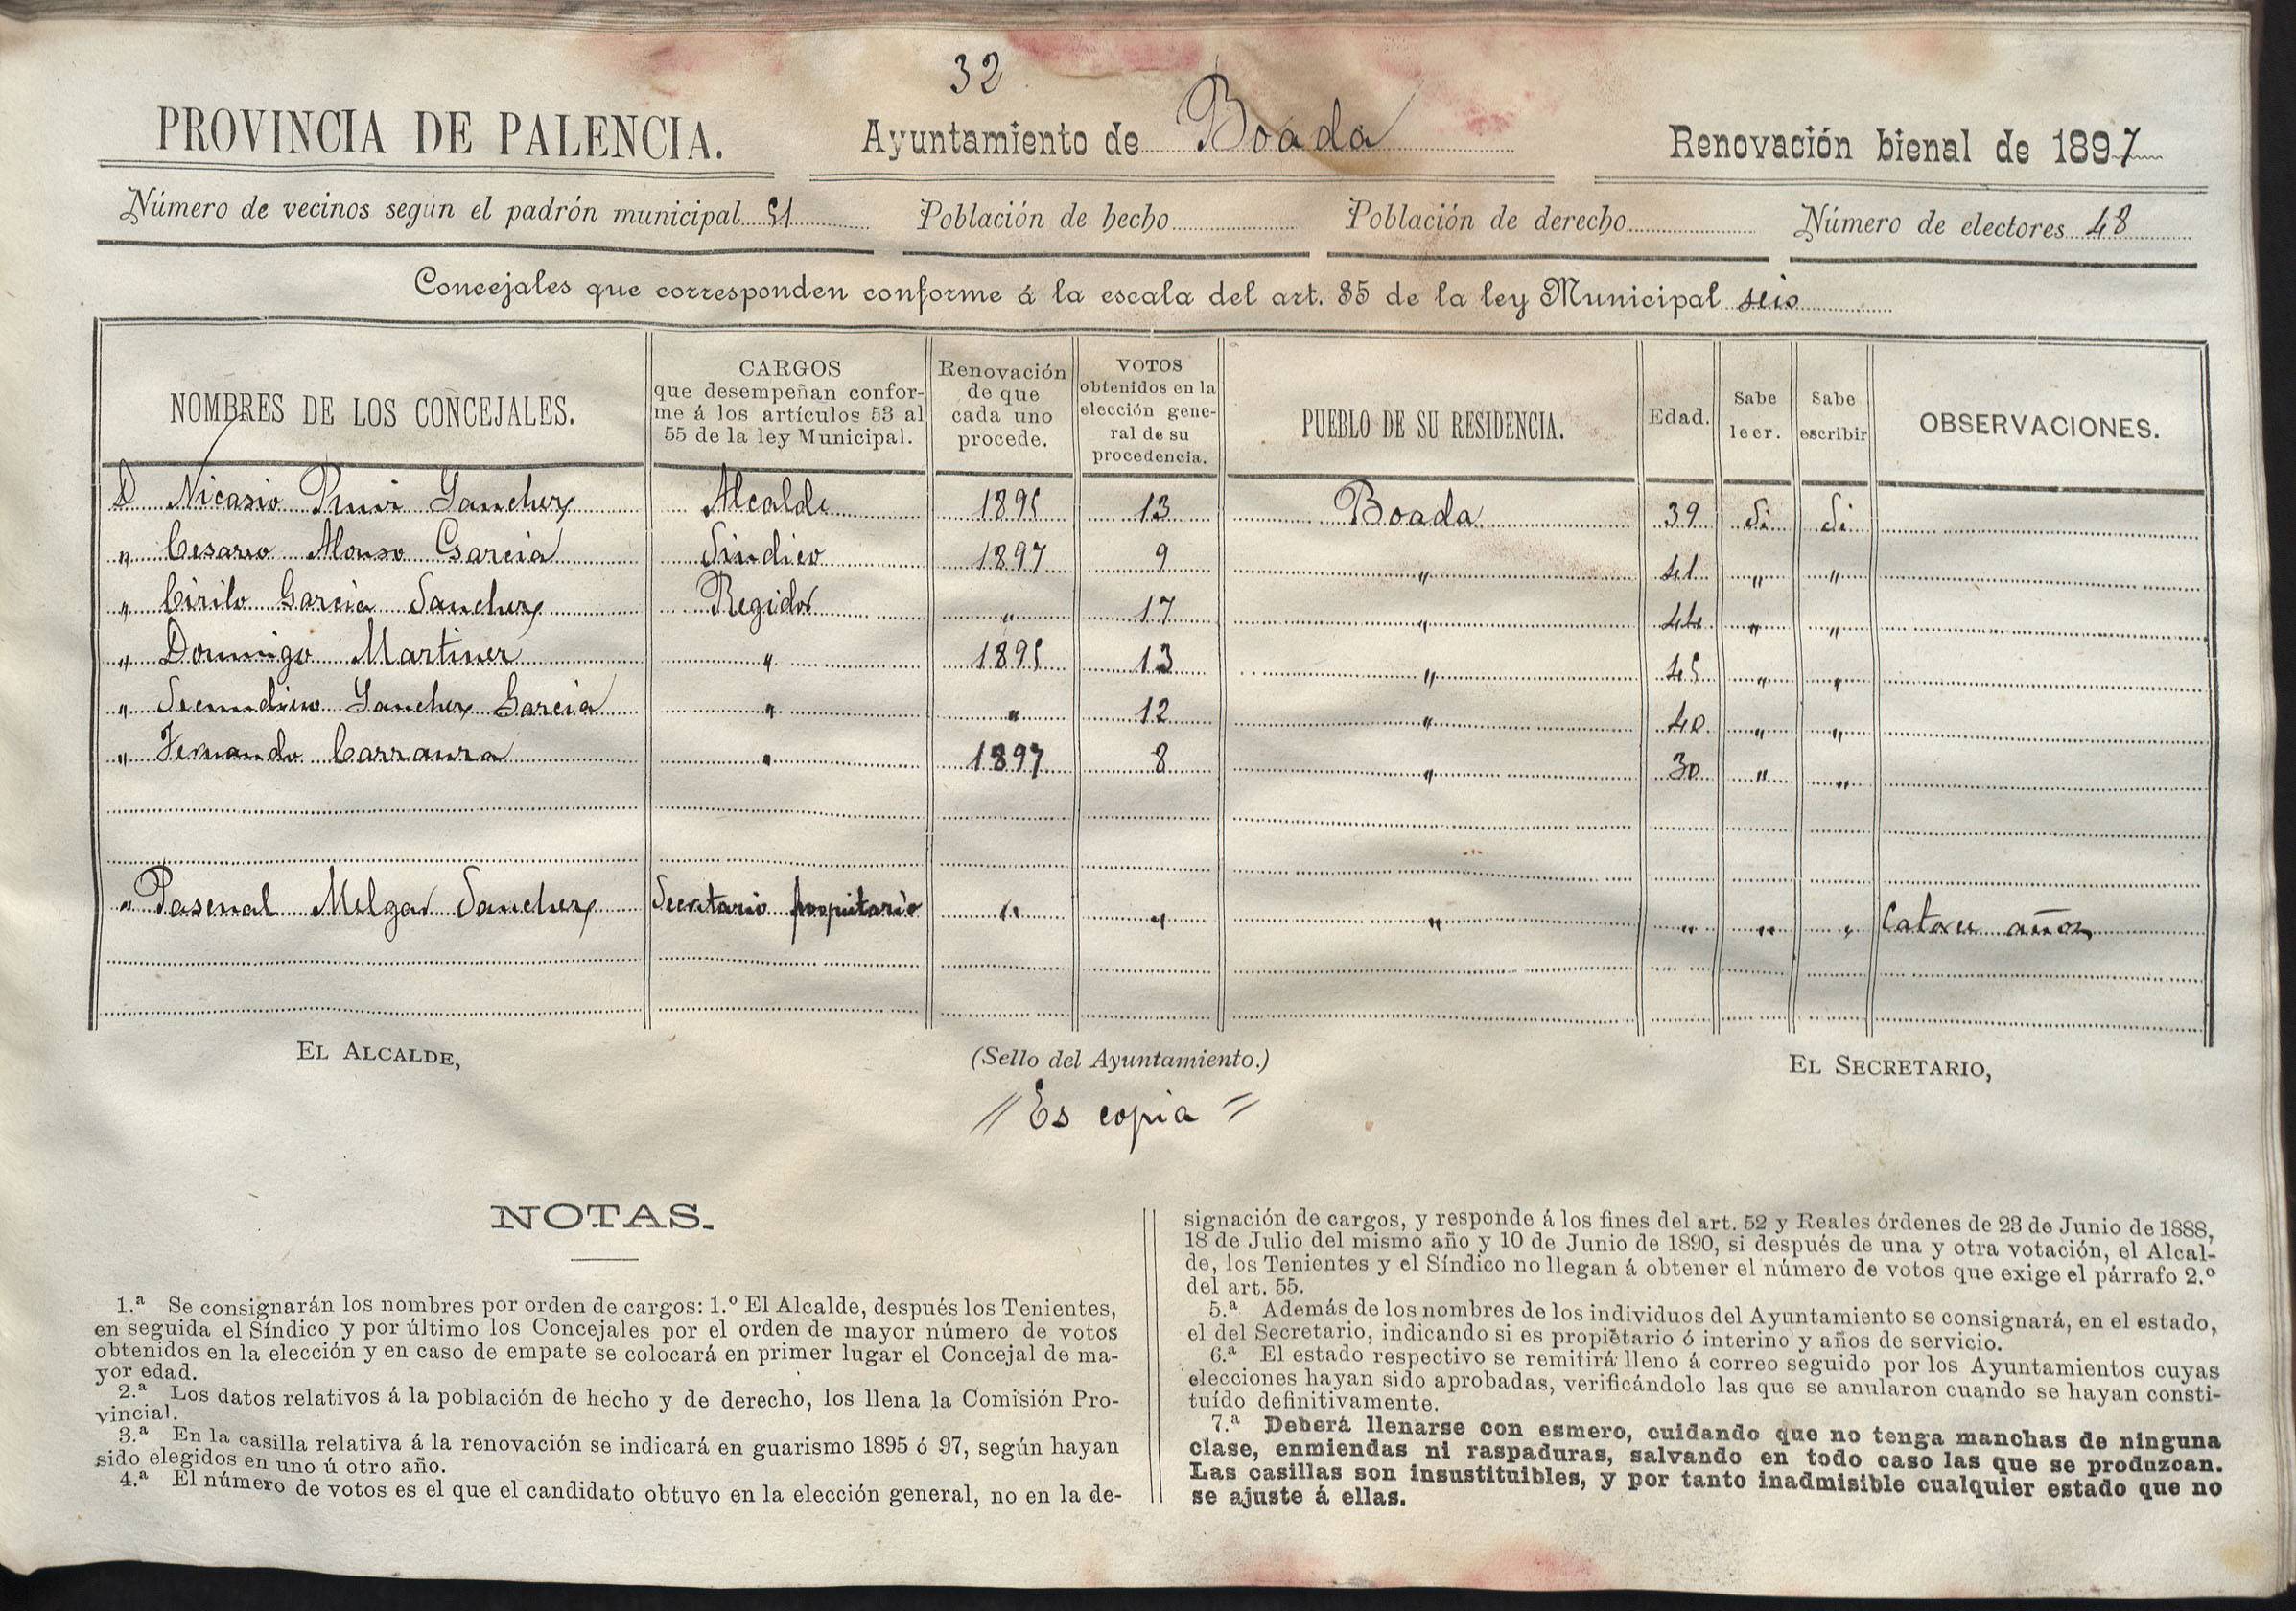 32
PROVINCIA DE PALENCIA. Ayuntamiento de Boada Renovación bienal de 1897
Número de vecinos según el padrón municipal 51 Población de hecho Población de derecho Número de electores 48
Concejales que corresponden conforme á la escala del art. 35 de la ley Municipal seis
NOMBRES DE LOS CONCEJALES. CARGOS que desempeñan confor- me á los artículos 53 al 55 de la ley Municipal. Renovación de que cada uno procede. VOTOS obtenidos en la elección gene- ral de su procedencia. PUEBLO DE SU RESIDENCIA. Edad. Sabe leer. Sabe escribir OBSERVACIONES.
D Nicasio Sanchez Alcalde 1895 13 Boada 39 Si Si
" Cesareo Alonso Garcia Sindico 1897 9 " 41 " "
" Cirilo Garcia Sanchez Regidor " 17 " 44 " "
" Domingo Martinez " 1895 13 " 45 " "
" Secundino Sanchez Garcia " " 12 " 40 " "
" Fernando Carranza " 1897 8 " 30 " "
" Pascual Melgar Sanchez Secretario propietario " " " " " " Catorce años
EL ALCALDE, (Sello del Ayuntamiento.) EL SECRETARIO,
// Es copia =
NOTAS.
1.ª Se consignarán los nombres por orden de cargos: 1.º El Alcalde, después los Tenientes,
en seguida el Síndico y por último los Concejales por el orden de mayor número de votos
obtenidos en la elección y en caso de empate se colocará en primer lugar el Concejal de ma-
yor edad.
2.ª Los datos relativos á la población de hecho y de derecho, los llena la Comisión Pro-
vincial.
3.ª En la casilla relativa á la renovación se indicará en guarismo 1895 ó 97, según hayan
sido elegidos en uno ú otro año.
4.ª El número de votos es el que el candidato obtuvo en la elección general, no en la de-
signación de cargos, y responde á los fines del art. 52 y Reales órdenes de 23 de Junio de 1888,
18 de Julio del mismo año y 10 de Junio de 1890, si después de una y otra votación, el Alcal-
de, los Tenientes y el Síndico no llegan á obtener el número de votos que exige el párrafo 2.º
del art. 55.
5.ª Además de los nombres de los individuos del Ayuntamiento se consignará, en el estado,
el del Secretario, indicando si es propietario ó interino y años de servicio.
6.ª El estado respectivo se remitirá lleno á correo seguido por los Ayuntamientos cuyas
elecciones hayan sido aprobadas, verificándolo las que se anularon cuando se hayan consti-
tuído definitivamente.
7.ª Deberá llenarse con esmero, cuidando que no tenga manchas de ninguna
clase, enmiendas ni raspaduras, salvando en todo caso las que se produzcan.
Las casillas son insustituibles, y por tanto inadmisible cualquier estado que no
se ajuste á ellas.